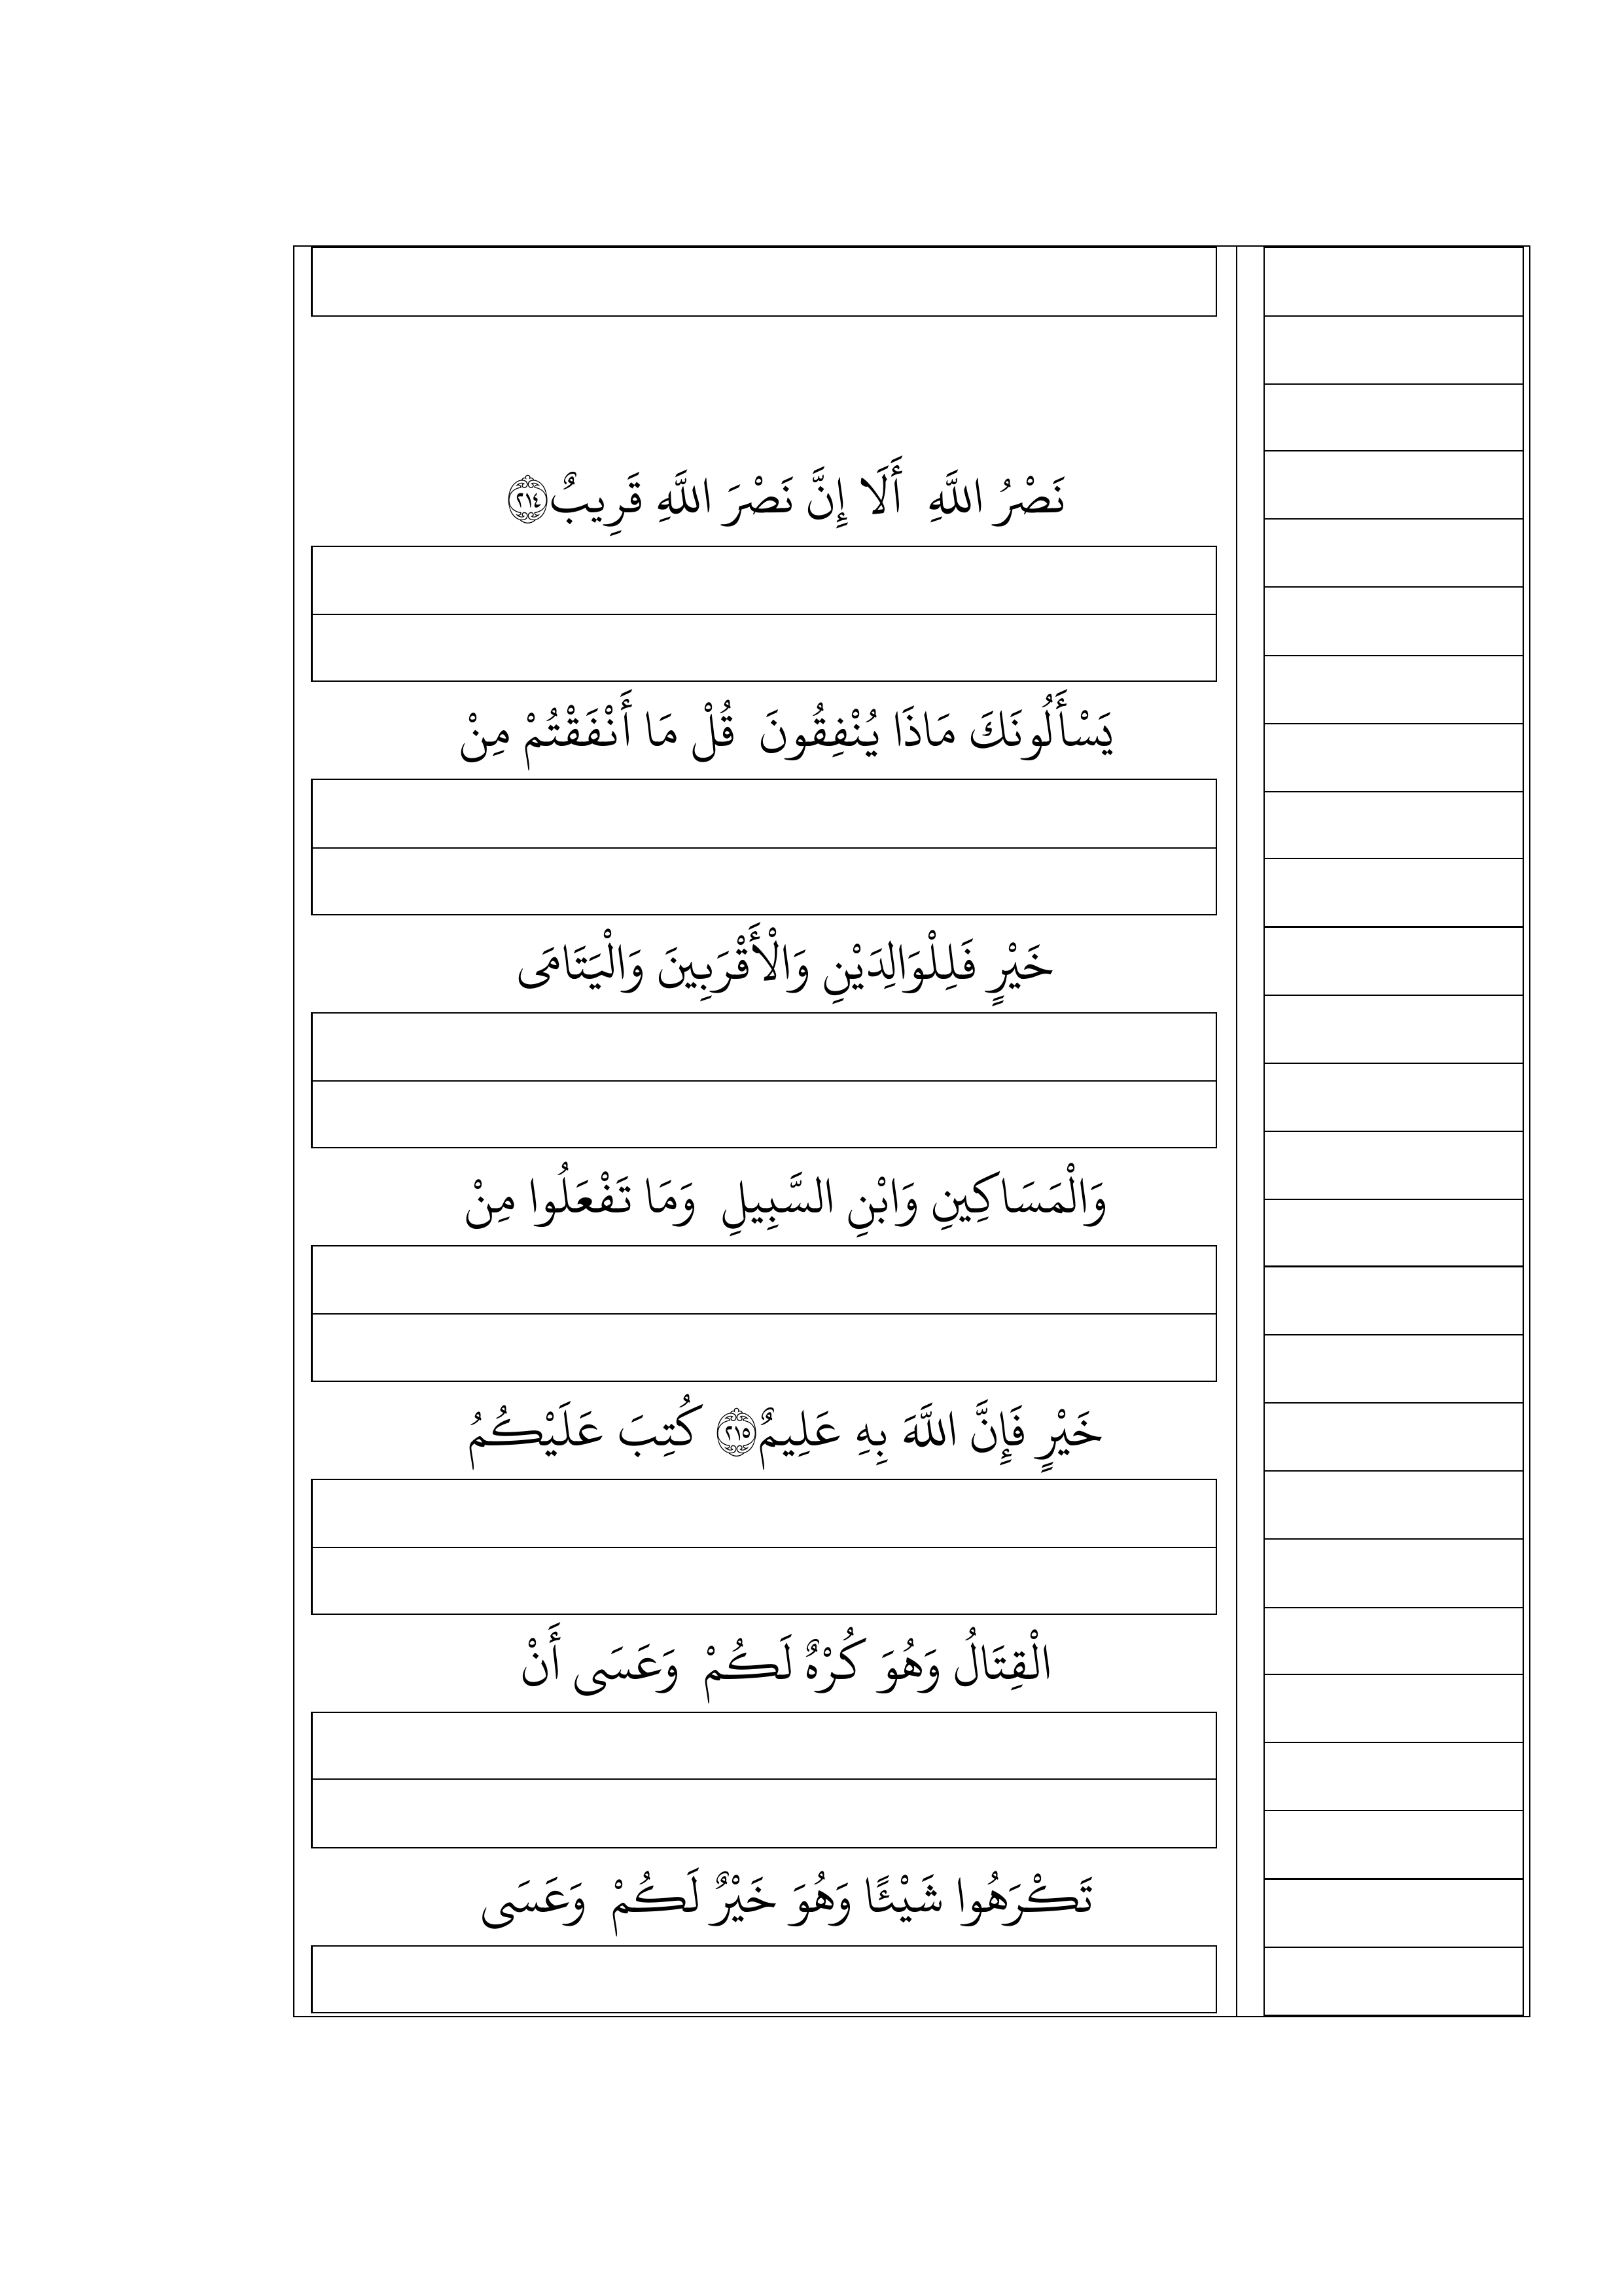 نَصْرُ اللَّهِ أَلَا إِنَّ نَصْرَ اللَّهِ قَرِيبٌ ﴿٢١٤﴾
يَسْأَلُونَكَ مَاذَا يُنْفِقُونَ قُلْ مَا أَنْفَقْتُمْ مِنْ
خَيْرٍ فَلِلْوَالِدَيْنِ وَالْأَقْرَبِينَ وَالْيَتَامَى
وَالْمَسَاكِينِ وَابْنِ السَّبِيلِ وَمَا تَفْعَلُوا مِنْ
خَيْرٍ فَإِنَّ اللَّهَ بِهِ عَلِيمٌ ﴿٢١٥﴾ كُتِبَ عَلَيْكُمُ
الْقِتَالُ وَهُوَ كُرْهٌ لَكُمْ وَعَسَى أَنْ
تَكْرَهُوا شَيْئًا وَهُوَ خَيْرٌ لَكُمْ وَعَسَى